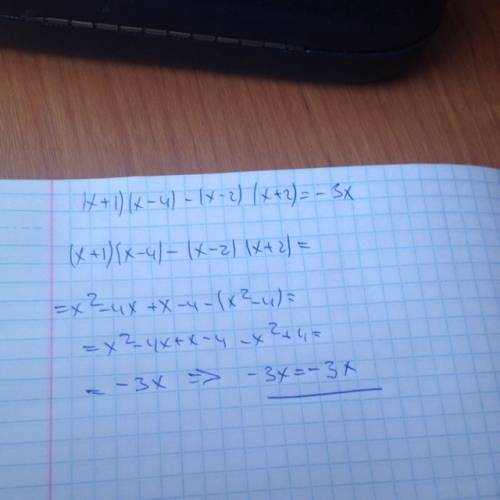 (x+1)(x-4)-(x-2)(x+2)=-3x
(x+1)(x-4)-(x-2)(x+2)=
=x²-4x+x-4-(x²-4)=
=x²-4x+x-4-x²+4=
=-3x => -3x=-3x